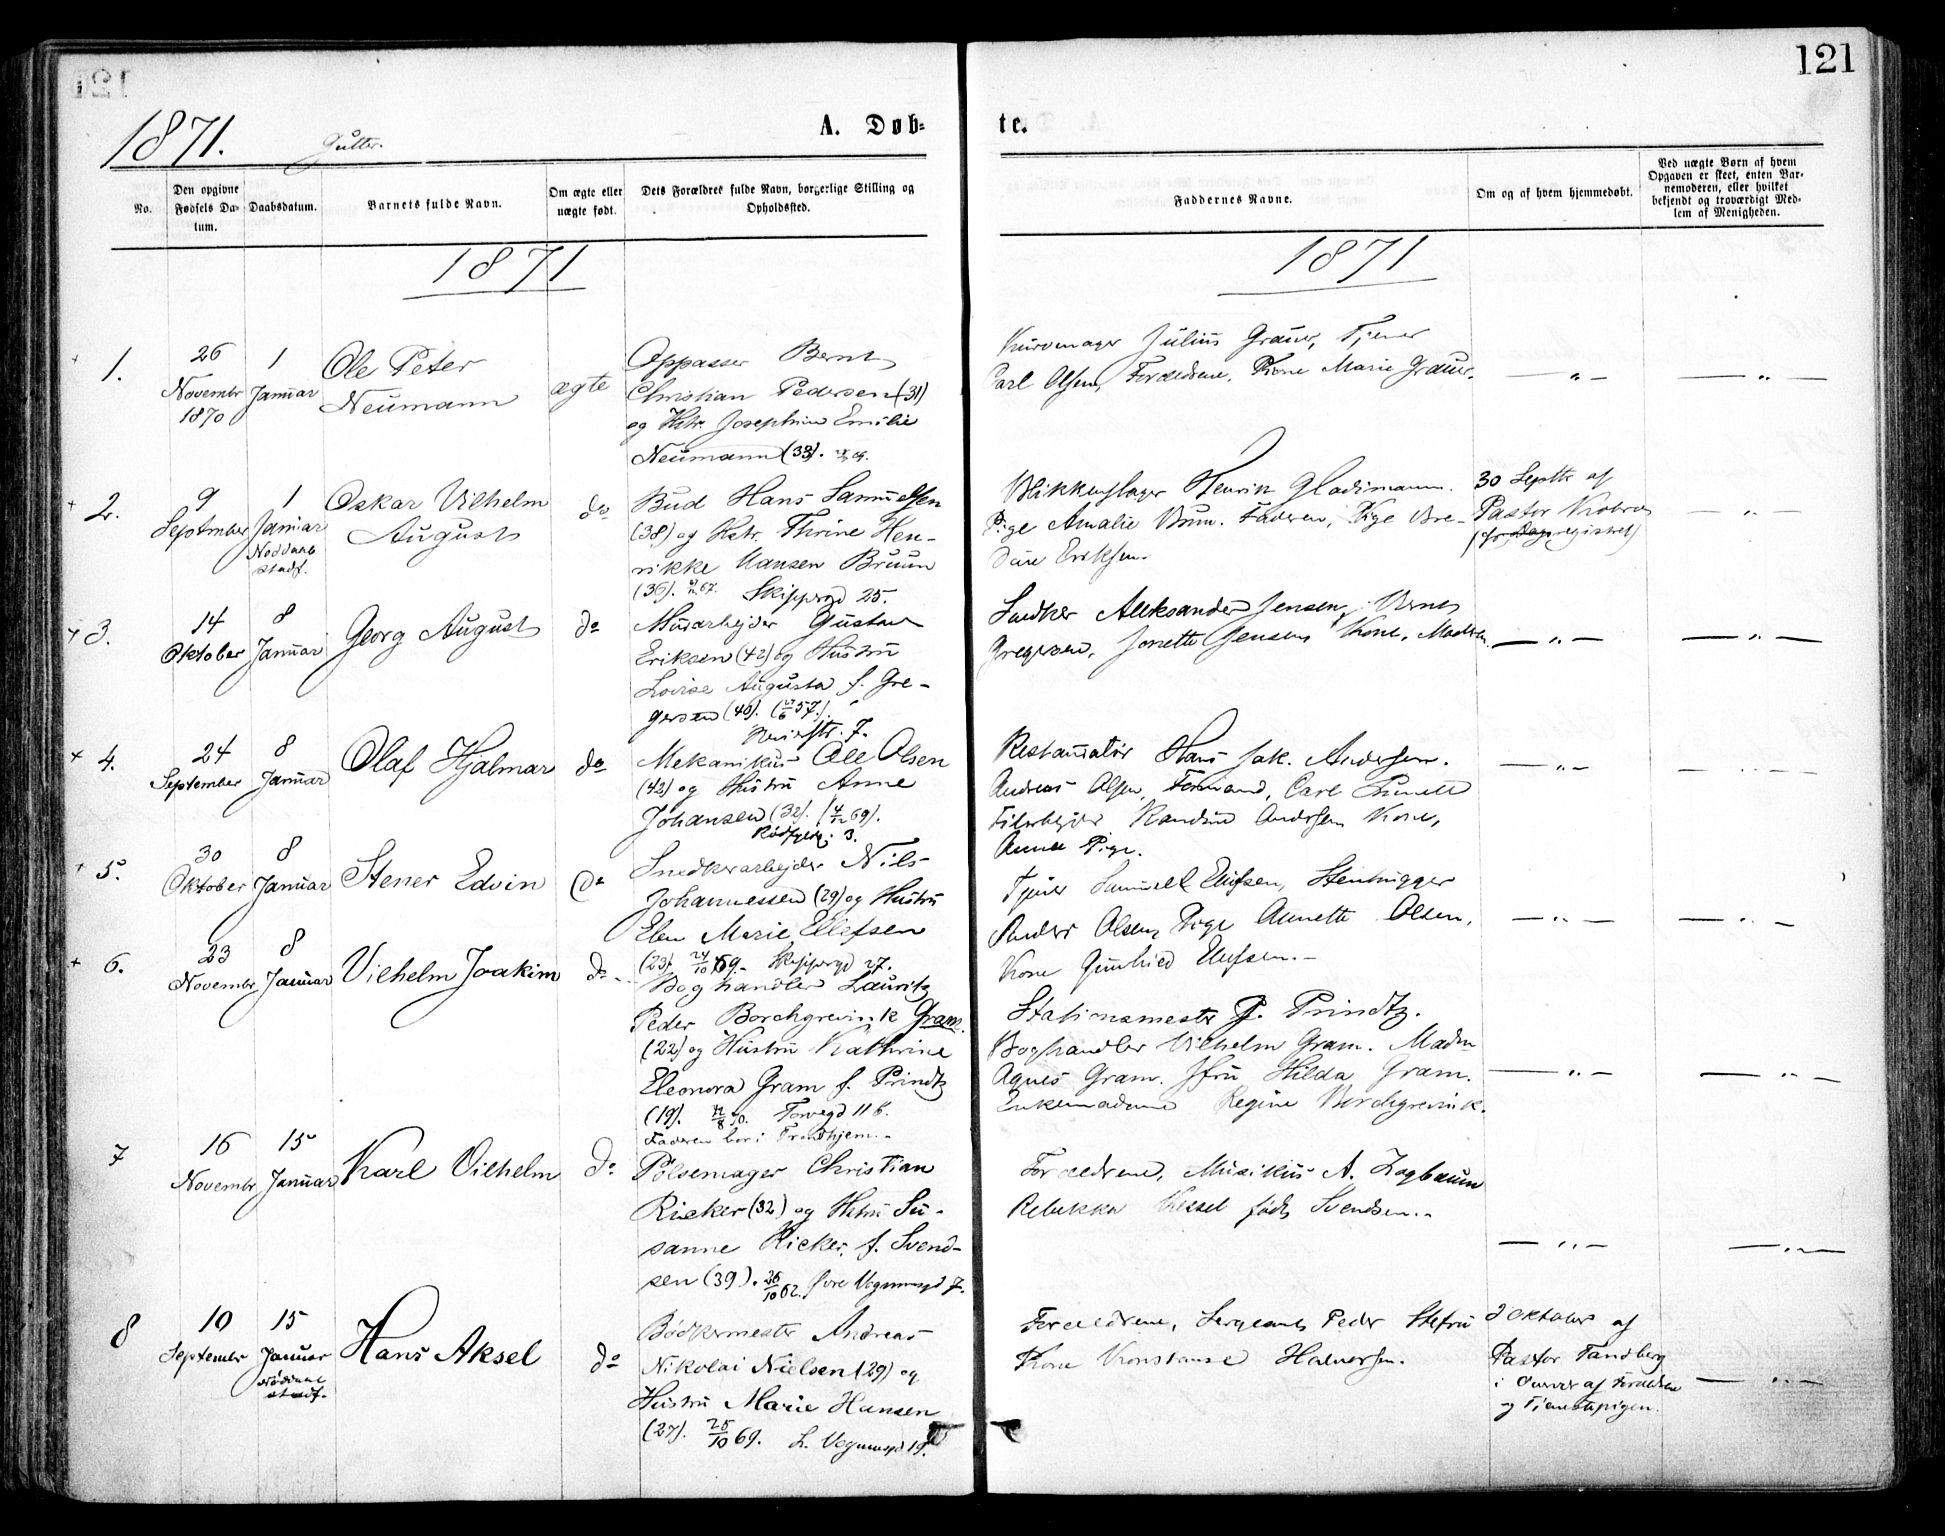 121
1871.
Gutter.
A. Døb-
te.
No.
Den opgivne Fødsels Da-tum.
Daabsdatum.
Barnets fulde Navn.
Om ægte eller uægte født.
Dets Forældres fulde Navn, borgerlige Stilling og Opholdssted.
Faddernes Navne.
Om og af hvem hjemmedøbt.
Ved uægte Børn af hvem Opgaven er skeet, enten Bar-nemoderen, eller hvilket bekjendt og troværdigt Med-lem af Menigheden.
1871
1871
1.
26 Novembr 1870
1 Januar
Ole Peter
Neumann
ægte
Oppasser Bernt
Christian Pedersen (31)
og Hstr. Josephine Emilie
Neumann (33).
Kurvmager Julius Grauer, Tjener
Carl Olsen, Forældrene, Kone Marie Grauer.
— " —
— " —
2.
9 September
1 Januar
Nøddaab
stadf.
Oskar Vilhelm
August
do
Bud Hans Samuelsen
(38) og Hstr. Thrine Hen-
rikke Hansen Bruun
(36). 67. Skippergd 25.
Blikkenslager Henrik Gladimann.
Pige Amalie Bruun. Faderen, Pige
Eriksen.
30 Septbr af
Pastor
— " —
3.
14 Oktober
8 Januar
Georg August
do
Murarbejder Gustav
Eriksen (42) og Hustru
Lovise Augusta f. Gre-
gersen (40). (27/6 57).
7.
Snedker Aleksander Jensen, Bernt
Gregersen, Jonette Jensen, Kone, Madsen
— " —
— " —
4.
24 September
8 Januar
Olaf Hjalmar
do
Mekanikus Ole Olsen
(42) og Hustru Anne
Johansen (32). (4/12 69).
3.
Restauratør Hans Jak. Andersen.
Andreas Olsen, Formand, Carl
Randine Andersen Kone,
Anna Pige.
— " —
— " —
5.
30 Oktober
8 Januar
Stener Edvin
do
Snedkerarbejder Nils
Johannessen (29) og Hustru
Elen Marie Ellefsen
(23). 24/10 69. Skippergd 27.
Tjener Samuel Ellefsen, Stenhugger
Anders Olsen, Pige Annette Olsen,
Kone Gunhild Ellefsen.
— " —
— " —
6.
23 Novembr
8 Januar
Vilhelm Joakim
do
Boghandler Lauritz
Peder Borchgrevink Gram.
(22) og Hustru Kathrine
Eleonora Gram f. Prindtz
(19). 70. Torvegd 11 b.
Faderen bor i Trondhjem.
Stationsmester P. Prindtz.
Boghandler Vilhelm Gram. Madm
Agnes Gram. Jfru Hilda Gram.
Enkemadame Regine Borchgrevink.
— " —
— " —
7
16 Novembr
15 Januar
Karl Vilhelm
do
Pølsemager Christian
Rieker (32) og Hstru Su-
sanne Rieker, f. Svend-
sen (39). 26/10 62. Øvre Vognmgd 7.
Forældrene, Musikus A. Zogbaum
Rebekka Kessel født Svendsen.
— " —
— " —
8
10 Septembr
15 Januar
Nøddaab
stadf.
Hans Aksel
do
Bødkermester Andreas
Nikolai Nielsen (29) og
Hustru Marie Hansen
(27). 25/10 69. L. Vognmgd 19.
Forældrene, Sergeant Peder
Kone Konstanse Halvorsen.
2 Oktober af
Pastor Tandberg
i Overvær af Forældrene
og Tjenestepigen.
— " —